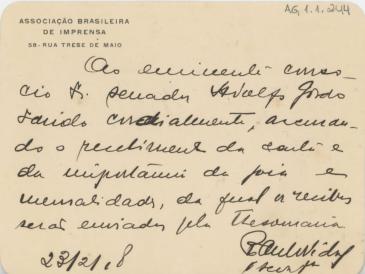 AG 1.1.244
ASSOCIAÇÃO BRASILEIRA
DE IMPRENSA
58-RUA TREBE DE MAIO
Ao eminente conso-
cio Sr. senador Adolfo Gordo
saúda cordialmente, accusan-
do o recebimento da carta e
da importância da joia e
mensalidades, da qual os recibos
serão enviados pela Thesouraria
23/2/18